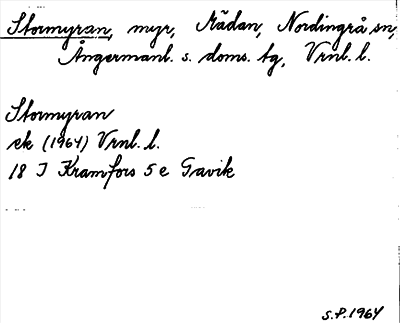 Stormyran, myr, Rädan, Nordingrå sn,
Ångermanl. s. doms. tg, Vrnl. l.
Stormyran
ek (1964) Vrnl. l.
18 I Kramfors 5 e Gavik
S.P. 1964